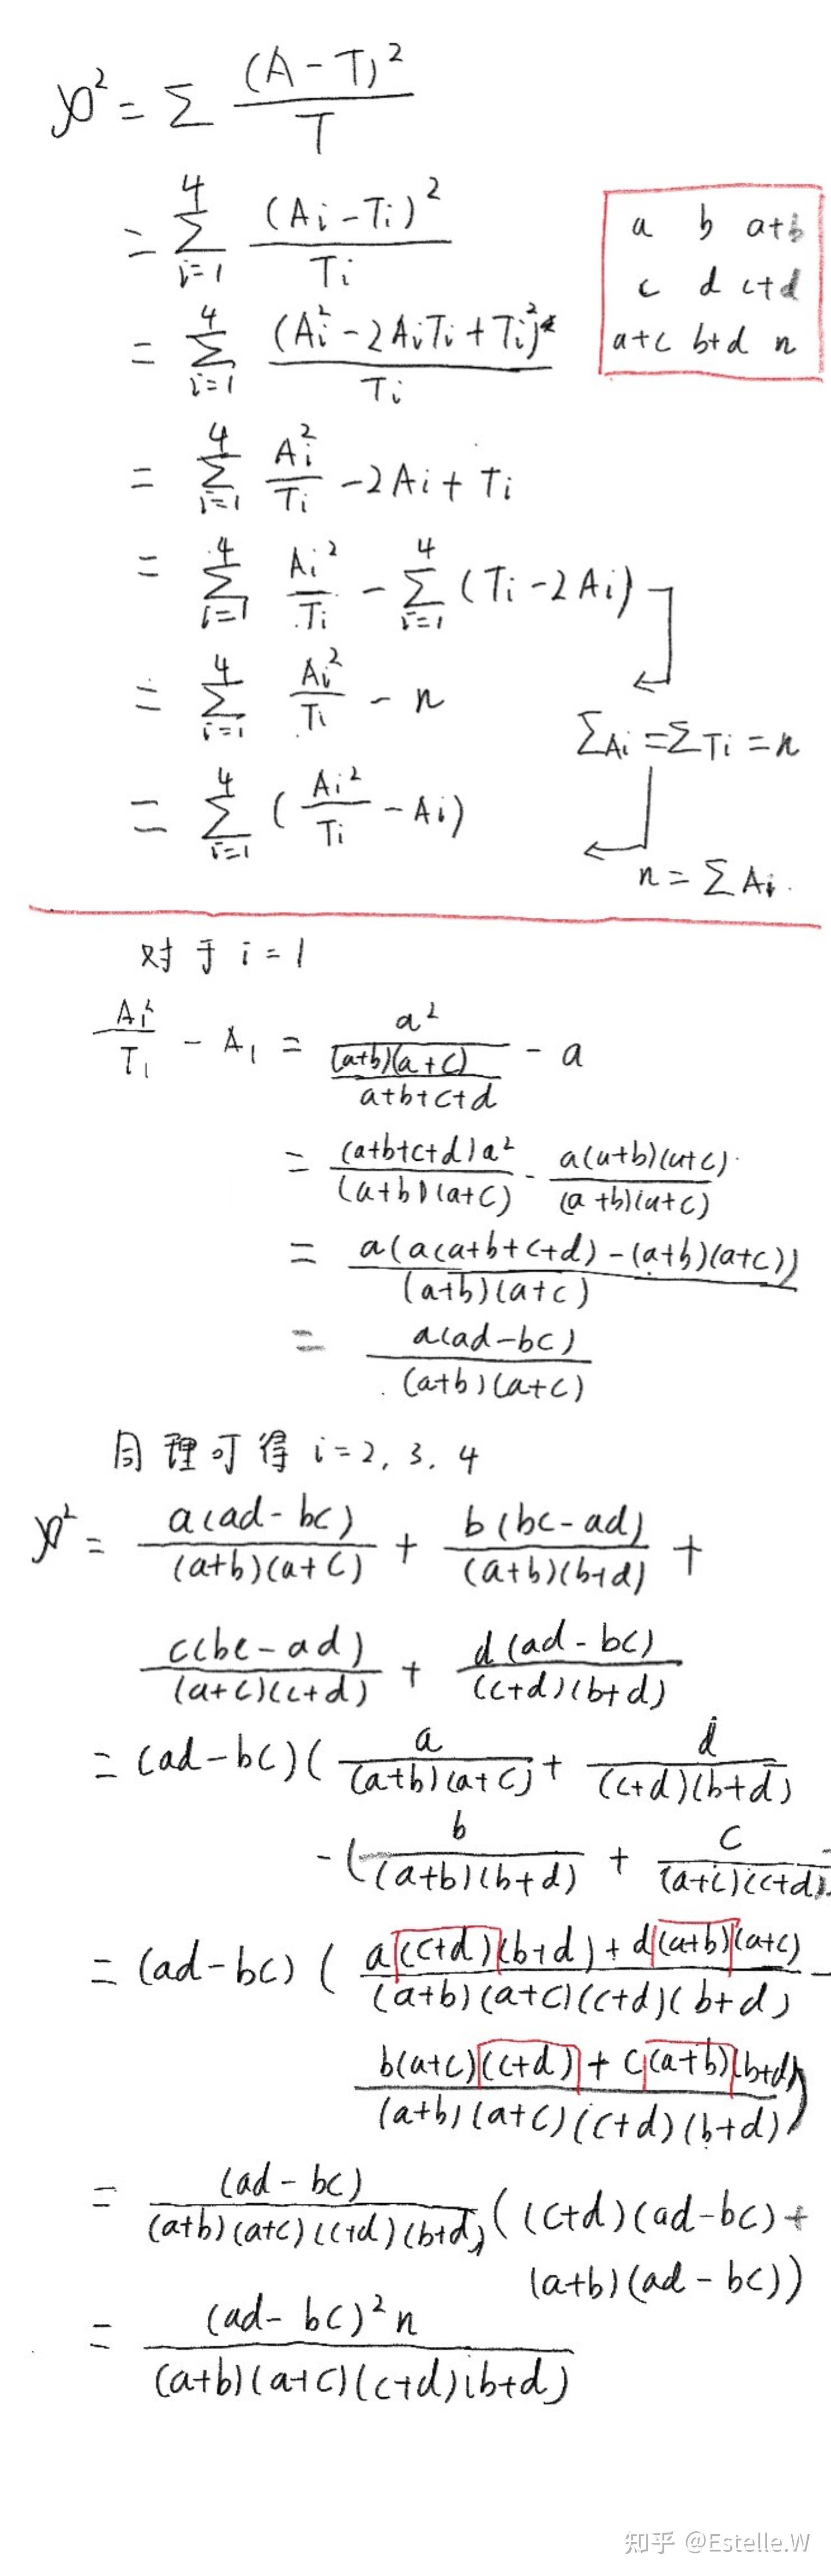 χ² = Σ (A - T)² / T
= Σ_{i=1}^{4} (Ai - Ti)² / Ti
a b a+b
c d c+d
a+c b+d n
= Σ_{i=1}^{4} (Ai² - 2AiTi + Ti²) / Ti
= Σ_{i=1}^{4} Ai²/Ti - 2Ai + Ti
= Σ_{i=1}^{4} Ai²/Ti - Σ_{i=1}^{4} (Ti - 2Ai)
= Σ_{i=1}^{4} Ai²/Ti - n
ΣAi = ΣTi = n
= Σ_{i=1}^{4} (Ai²/Ti - Ai)
n = ΣAi.
对于 i = 1
A₁²/T₁ - A₁ = a² / ((a+b)(a+c) / (a+b+c+d)) - a
= (a+b+c+d)a² / (a+b)(a+c) - a(a+b)(a+c) / (a+b)(a+c)
= a(a(a+b+c+d) - (a+b)(a+c)) / (a+b)(a+c)
= a(ad-bc) / (a+b)(a+c)
同理可得 i = 2, 3, 4
χ² = a(ad-bc) / (a+b)(a+c) + b(bc-ad) / (a+b)(b+d) +
c(bc-ad) / (a+c)(c+d) + d(ad-bc) / (c+d)(b+d)
= (ad-bc)( a / (a+b)(a+c) + d / (c+d)(b+d)
- ( b / (a+b)(b+d) + c / (a+c)(c+d)
= (ad-bc) ( a(c+d)(b+d) + d(a+b)(a+c) / (a+b)(a+c)(c+d)(b+d) -
b(a+c)(c+d) + c(a+b)(b+d) / (a+b)(a+c)(c+d)(b+d) )
= (ad-bc) / (a+b)(a+c)(c+d)(b+d) ((c+d)(ad-bc) +
(a+b)(ad-bc))
= (ad-bc)²n / (a+b)(a+c)(c+d)(b+d)
知乎 @Estelle.W